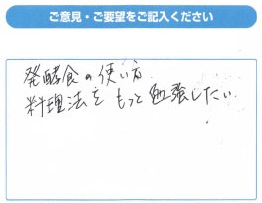 ご意見・ご要望をご記入ください
発酵食の使い方
料理法をもっと勉強したい